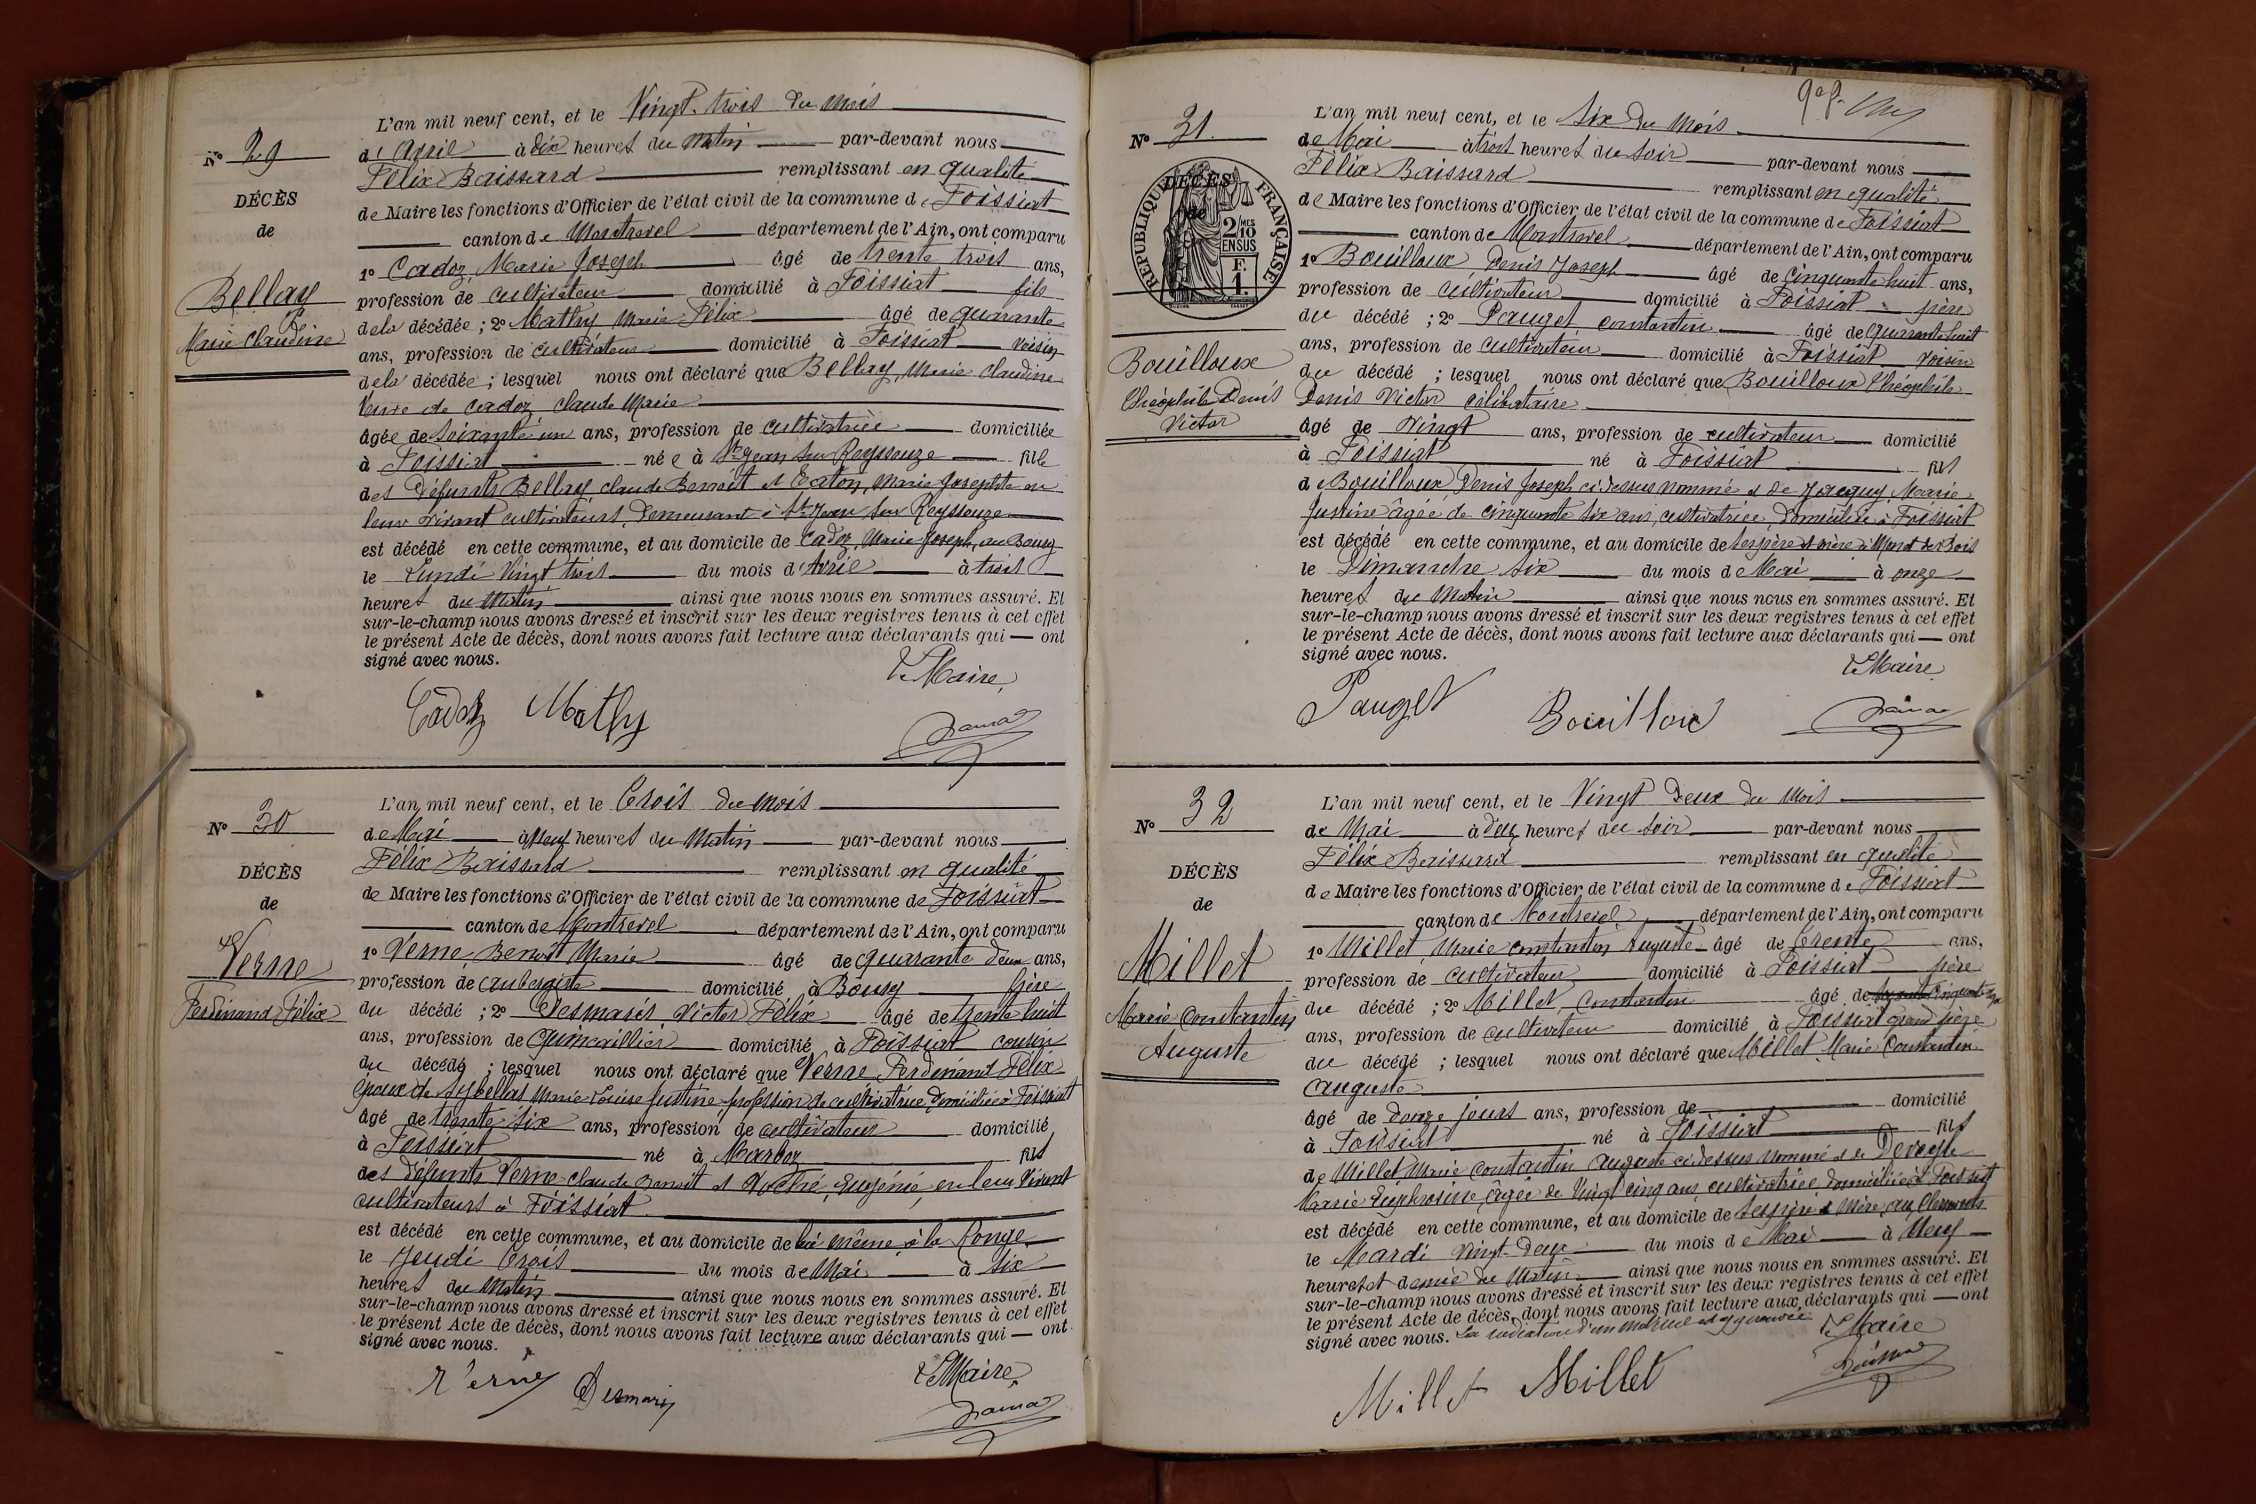 L'an mil neuf cent, et le Vingt-trois du mois
N° 29
d'Avril à dix heures du matin par-devant nous
Félix Baissard remplissant en qualité
DÉCÈS
de Maire les fonctions d'Officier de l'état civil de la commune de Foissiat
de
canton de Montrevel département de l'Ain, ont comparu
1° Cadoz, Marie Joseph âgé de trente trois ans,
Bellay
profession de cultivateur domicilié à Foissiat fils
Marie Claudine
de la décédée ; 2° Mathy Marie Félix âgé de quarante
ans, profession de cultivateur domicilié à Foissiat voisin
de la décédée ; lesquel nous ont déclaré que Bellay, Marie Claudine
Veuve de Cadoz Claude Marie
âgée de soixante un ans, profession de cultivatrice domiciliée
à Foissiat née à St Jean sur Reyssouze fille
des défunts Bellay, Claude Benoit et Marie Josephte en
leur vivant cultivateurs, demeurant à St Jean sur Reyssouze
est décédé en cette commune, et au domicile de Cadoz, Marie Joseph, au Bourg
le Lundi Vingt trois du mois d'Avril à trois
heures du Matin ainsi que nous nous en sommes assuré. Et
sur-le-champ nous avons dressé et inscrit sur les deux registres tenus à cet effet
le présent Acte de décès, dont nous avons fait lecture aux déclarants qui — ont
signé avec nous.
Le Maire,
Cadoz Mathy
L'an mil neuf cent, et le Trois du mois
N° 30
de Mai à Neuf heures du Matin par-devant nous
Félix Baissard remplissant en qualité
DÉCÈS
de Maire les fonctions d'Officier de l'état civil de la commune de Foissiat
de
canton de Montrevel département de l'Ain, ont comparu
Verne
1° Verne, Benoit Marie âgé de quarante deux ans,
profession de aubergiste domicilié à Bourg frère
Ferdinand Félix
du décédé ; 2° Desmaris Victor Félix âgé de trente huit
ans, profession de quincaillier domicilié à Foissiat cousin
du décédé ; lesquel nous ont déclaré que Verne Ferdinand Félix
époux de Sybellas Marie Louise Justine profession de cultivatrice domiciliée à Foissiat
âgé de trente six ans, profession de cultivateur domicilié
à Foissiat né à Marboz fils
des défunts Verne Claude Benoit et Eugénie, en leur vivant
cultivateurs à Foissiat
est décédé en cette commune, et au domicile de lui même, à la Ronge
le Jeudi trois du mois de Mai à six
heures du Matin ainsi que nous nous en sommes assuré. Et
sur-le-champ nous avons dressé et inscrit sur les deux registres tenus à cet effet
le présent Acte de décès, dont nous avons fait lecture aux déclarants qui — ont
signé avec nous.
Le Maire,
Verne Desmaris
L'an mil neuf cent, et le Six du mois
N° 31
de Mai à trois heures du soir par-devant nous
Félix Baissard remplissant en qualité
DÉCÈS
de
RÉPUBLIQUE FRANÇAISE
2 MES 10
EN SUS
F.
1.
de Maire les fonctions d'Officier de l'état civil de la commune de Foissiat
canton de Montrevel département de l'Ain, ont comparu
1° Bouilloux Denis Joseph âgé de Cinquante huit ans,
profession de cultivateur domicilié à Foissiat père
du décédé ; 2° Pauget, Constantin âgé de quarante huit
Bouilloux
ans, profession de cultivateur domicilié à Foissiat voisin
Théophile Denis
Victor
du décédé ; lesquel nous ont déclaré que Bouilloux Théophile
Denis Victor célibataire
âgé de Vingt ans, profession de cultivateur domicilié
à Foissiat né à Foissiat fils
de Bouilloux Denis Joseph ci dessus nommé et de Jacquy Marie
Justine âgée de cinquante six ans, cultivatrice, domiciliée à Foissiat
est décédé en cette commune, et au domicile de ses père et mère à Mont de Bois
le Dimanche six du mois de Mai à onze
heures du Matin ainsi que nous nous en sommes assuré. Et
sur-le-champ nous avons dressé et inscrit sur les deux registres tenus à cet effet
le présent Acte de décès, dont nous avons fait lecture aux déclarants qui — ont
signé avec nous.
Le Maire
Pauget Bouilloux
L'an mil neuf cent, et le Vingt deux du mois
N° 32
de Mai à deux heures du soir par-devant nous
Félix Baissard remplissant en qualité
DÉCÈS
de Maire les fonctions d'Officier de l'état civil de la commune de Foissiat
de
canton de Montrevel département de l'Ain, ont comparu
Millet
1° Millet, Marie Constantin Auguste âgé de trente ans,
profession de cultivateur domicilié à Foissiat père
Marie Constantin
Auguste
du décédé ; 2° Millet, Constantin âgé de
ans, profession de cultivateur domicilié à Foissiat grand père
du décédé ; lesquel nous ont déclaré que Millet Marie Constantin
Auguste
âgé de douze jours ans, profession de domicilié
à Foissiat né à Foissiat fils
de Millet, Marie Constantin Auguste ci dessus nommé et de
Marie Euphrosine, âgée de Vingt cinq ans, cultivatrice domiciliée à Foissiat
est décédé en cette commune, et au domicile de ses père et mère, aux
le Mardi Vingt-deux du mois de Mai à Neuf
heures et demie du Matin ainsi que nous nous en sommes assuré. Et
sur-le-champ nous avons dressé et inscrit sur les deux registres tenus à cet effet
le présent Acte de décès, dont nous avons fait lecture aux déclarants qui — ont
signé avec nous. La radiation d'un mot nul est approuvée
Le Maire
Millet Millet